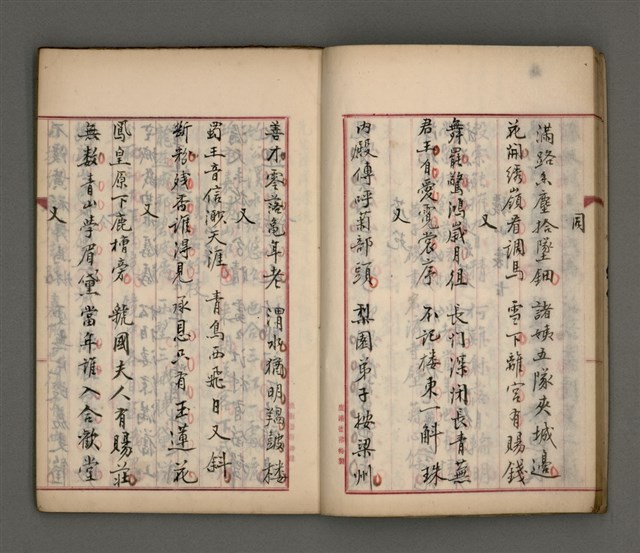 同
滿路香塵拾墜鈿　諸姨五隊夾城邊
花開綉嶺看調馬　雪下離宮有賜錢
又
舞罷驚鴻歲月徂　長门深閉長青蕪
君王自愛霓裳序　不記楼東一斛珠
又
內殿傳呼菊部頭　梨園弟子按梁州
善才零落龜年老　渭水猶明羯皷楼
又
蜀王音信渺天涯　青鳥西飛日又斜
斷粉残香誰得見　承恩只有玉蓮花
又
鳳皇原下鹿槽旁　虢國夫人有賜莊
無數青山學眉黛　當年誰入合歡堂
又